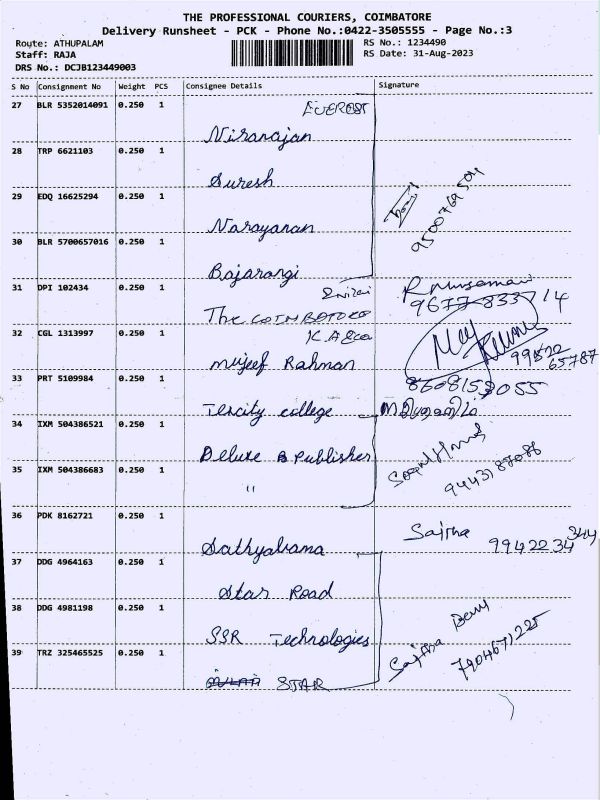 THE PROFESSIONAL COURIERS, COIMBATORE
Delivery Runsheet - PCK - Phone No.:0422-3505555 - Page No.:3
Route: ATHUPALAM
RS No.: 1234490
Staff: RAJA
RS Date: 31-Aug-2023
DRS No.: DCJB123449003
S No Consignment No Weight PCS Consignee Details Signature
27 BLR 5352014091 0.250 1 EVEREST
Niranajan
28 TRP 6621103 0.250 1
Suresh
29 EDQ 16625294 0.250 1
Narayanan
9500769504
30 BLR 5700657016 0.250 1
Bajarangi
31 DPI 102434 0.250 1
The COIMBATORE
9677-833714
32 CGL 1313997 0.250 1
Mujeef Rahman
99522
65787
33 PRT 5109984 0.250 1
8608153055
Tercity college
34 IXM 504386521 0.250 1
Deluxe B Publisher
35 IXM 504386683 0.250 1
"
36 PDK 8162721 0.250 1
Sajitha
Sathyabama
9942234344
37 DDG 4964163 0.250 1
Star Road
38 DDG 4981198 0.250 1
SSR Technologies
Sajitha
7904671225
39 TRZ 325465525 0.250 1
STAR